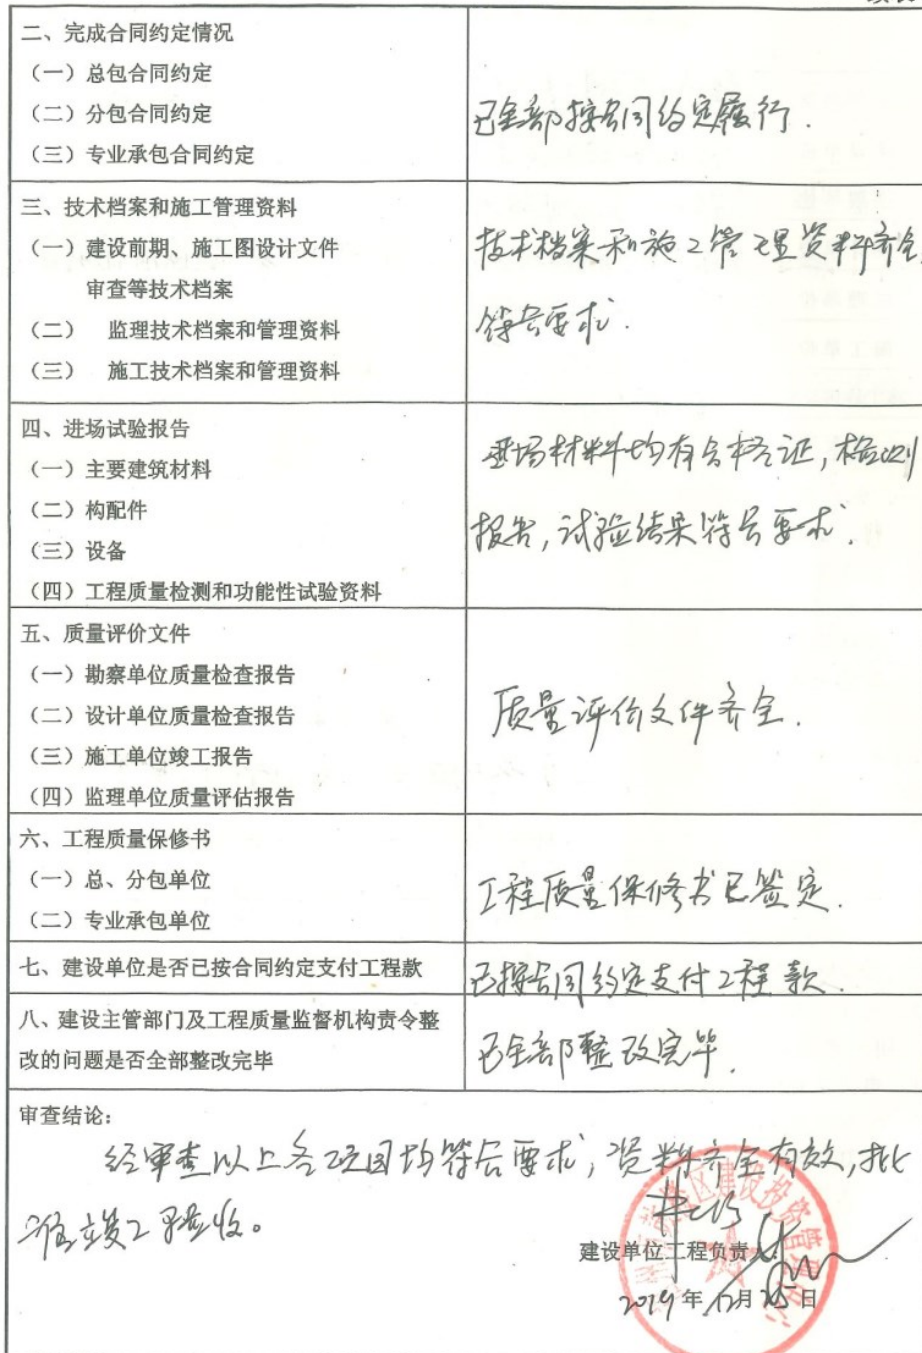 二、完成合同约定情况
（一）总包合同约定
（二）分包合同约定
（三）专业承包合同约定
已全部按合同约定履行.
三、技术档案和施工管理资料
（一）建设前期、施工图设计文件
审查等技术档案
（二） 监理技术档案和管理资料
（三） 施工技术档案和管理资料
技术档案和施工管理资料齐全,
符合要求.
四、进场试验报告
（一）主要建筑材料
（二）构配件
（三）设备
（四）工程质量检测和功能性试验资料
进场材料均有合格证,检测
报告,试验结果符合要求.
五、质量评价文件
（一）勘察单位质量检查报告
（二）设计单位质量检查报告
（三）施工单位竣工报告
（四）监理单位质量评估报告
质量评价文件齐全.
六、工程质量保修书
（一）总、分包单位
（二）专业承包单位
工程质量保修书已签定.
七、建设单位是否已按合同约定支付工程款
已按合同约定支付工程款.
八、建设主管部门及工程质量监督机构责令整
改的问题是否全部整改完毕
已全部整改完毕.
审查结论：
经审查以上各项目均符合要求,资料齐全有效,批
准竣工验收。
区建设投资管理
建设单位工程负责人:
2019年12月25日